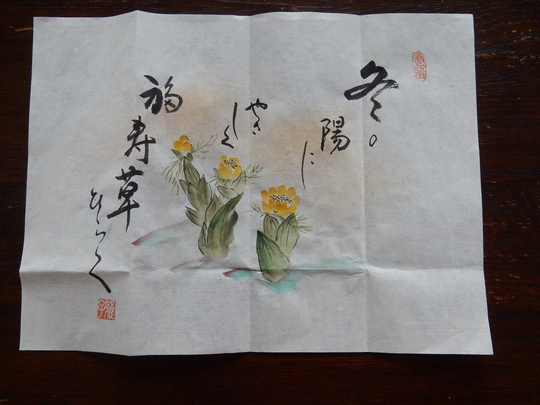 冬の
陽に
やさ
しく
福寿草
ひらく